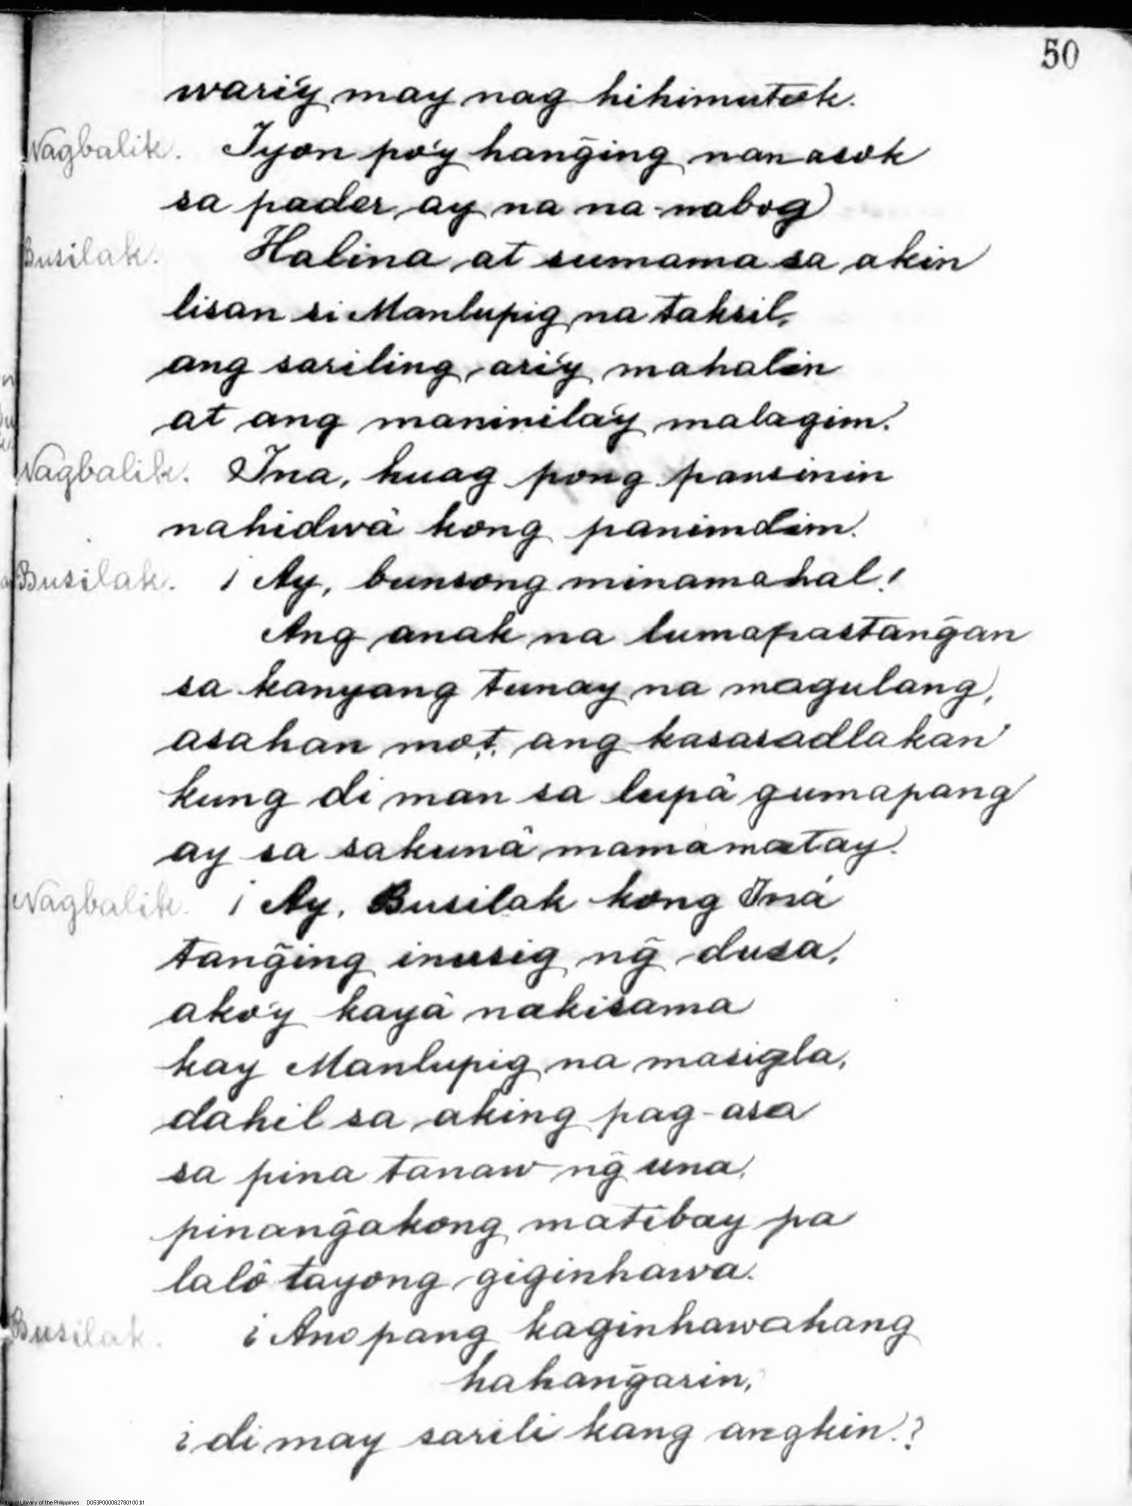 50
wari'y may nag hihimutok.
Nagbalik. Iyon po'y hang̃ing nan asok
sa pader ay na na-nabog
Busilak. Halina at sumama sa akin
lisan si Manlupig na taksil,
ang sariling ari'y mahalin
at ang maninila'y malagim.
Nagbalik. Ina, huag pong pansinin
nahidwâ kong panimdim.
Busilak. ¡ Ay, bunsong minamahal!
Ang anak na lumapastang̃an
sa kanyang tunay na magulang,
asahan mo't, ang kasasadlakan
kung di man sa lupâ gumapang
ay sa sakunâ mamamatay.
Nagbalik. ¡ Ay, Busilak kong Iná
tang̃ing inusig ng̃ dusa,
ako'y kayâ nakisama
kay Manlupig na masigla,
dahil sa aking pag-asa
sa pina tanaw ng̃ una,
pinang̃akong matibay pa
lalô tayong giginhawa.
Busilak. ¿ Ano pang kaginhawahang
hahang̃arin,
¿ di may sarili kang angkin.?
National Library of the Philippines